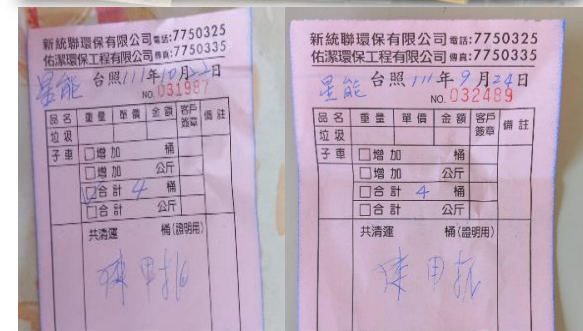 新統聯環保有限公司電話:7750325
佑潔環保工程有限公司傳真:7750335
星能 台照111年10月22日
NO. 031987
品名 重量 單價 金額 客戶簽章 備註
垃圾
子車 □增加 桶
□增加 公斤
☑合計 4 桶
□合計 公斤
共清運 桶(證明用)
新統聯環保有限公司電話:7750325
佑潔環保工程有限公司傳真:7750335
星能 台照111年9月24日
NO. 032489
品名 重量 單價 金額 客戶簽章 備註
垃圾
子車 □增加 桶
□增加 公斤
□合計 4 桶
□合計 公斤
共清運 桶(證明用)